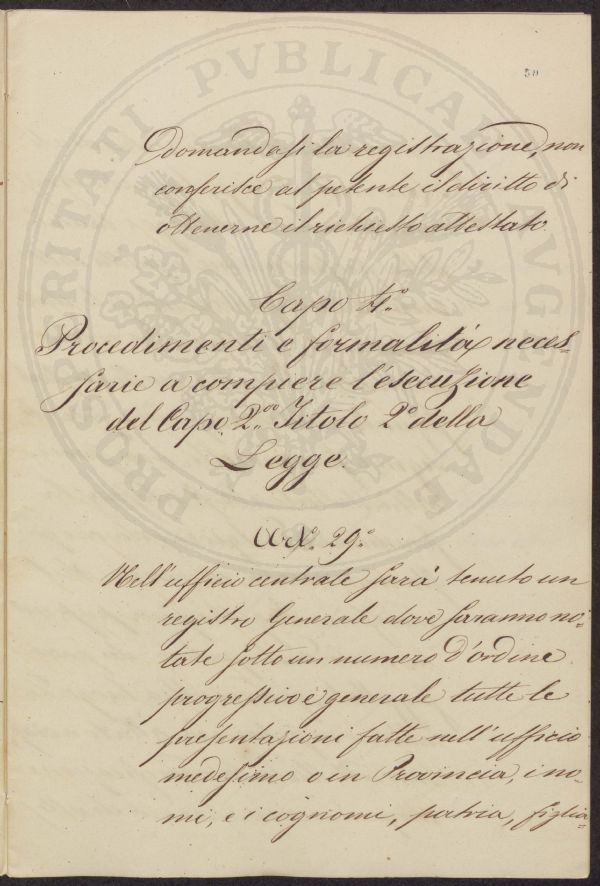 50
domandasi la registrazione, non
conferisce al petente il diritto di
ottenerne il richiesto attestato
Capo 4.º
Procedimenti e formalità neces-
sarie a compiere l'esecuzione
del Capo 2.º Titolo 2º della
Legge.
Art. 29.º
Nell'ufficio centrale sarà tenuto un
registro Generale dove saranno no-
tate sotto un numero d'ordine
progressivo e generale tutte le
presentazioni fatte nell'ufficio
medesimo o in Provincia, i no-
mi, e i cognomi, patria, figlia-
PROSPERITATI PVBLICAE AVGENDAE